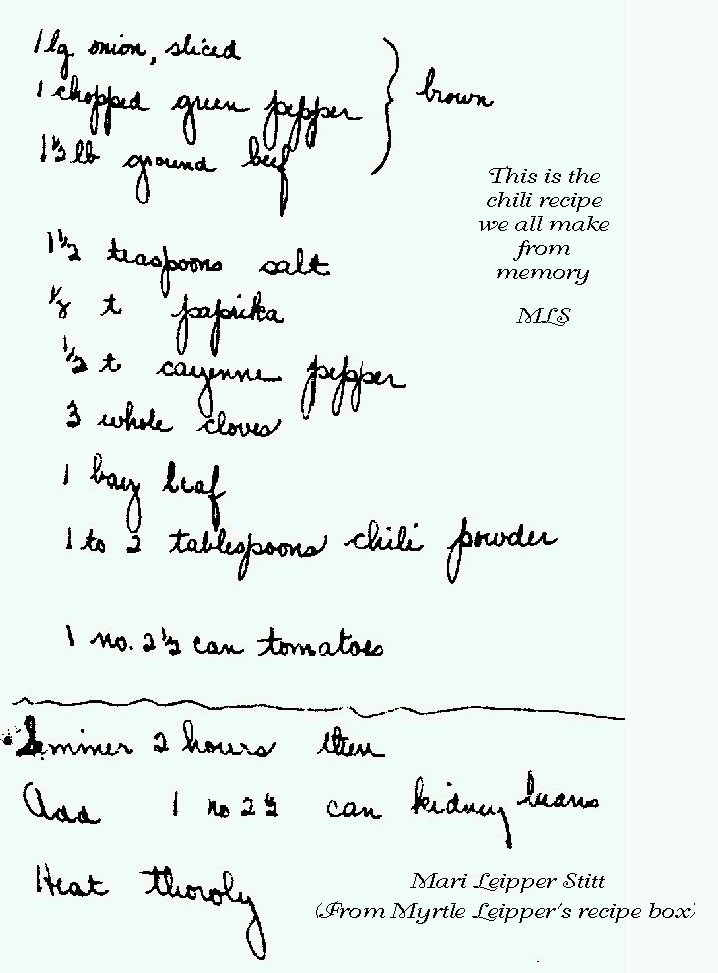 1 lg onion, sliced
1 chopped green pepper } brown
1 1/2 lb ground beef
This is the
chili recipe
we all make
from
memory
MLS
1 1/2 teaspoons salt
1/8 t paprika
1/2 t cayenne pepper
3 whole cloves
1 bay leaf
1 to 2 tablespoons chili powder
1 no. 2 1/2 can tomatoes
Simmer 2 hours then
Add 1 no 2 1/2 can kidney beans
Heat thoroly
Mari Leipper Stitt
(From Myrtle Leipper's recipe box)